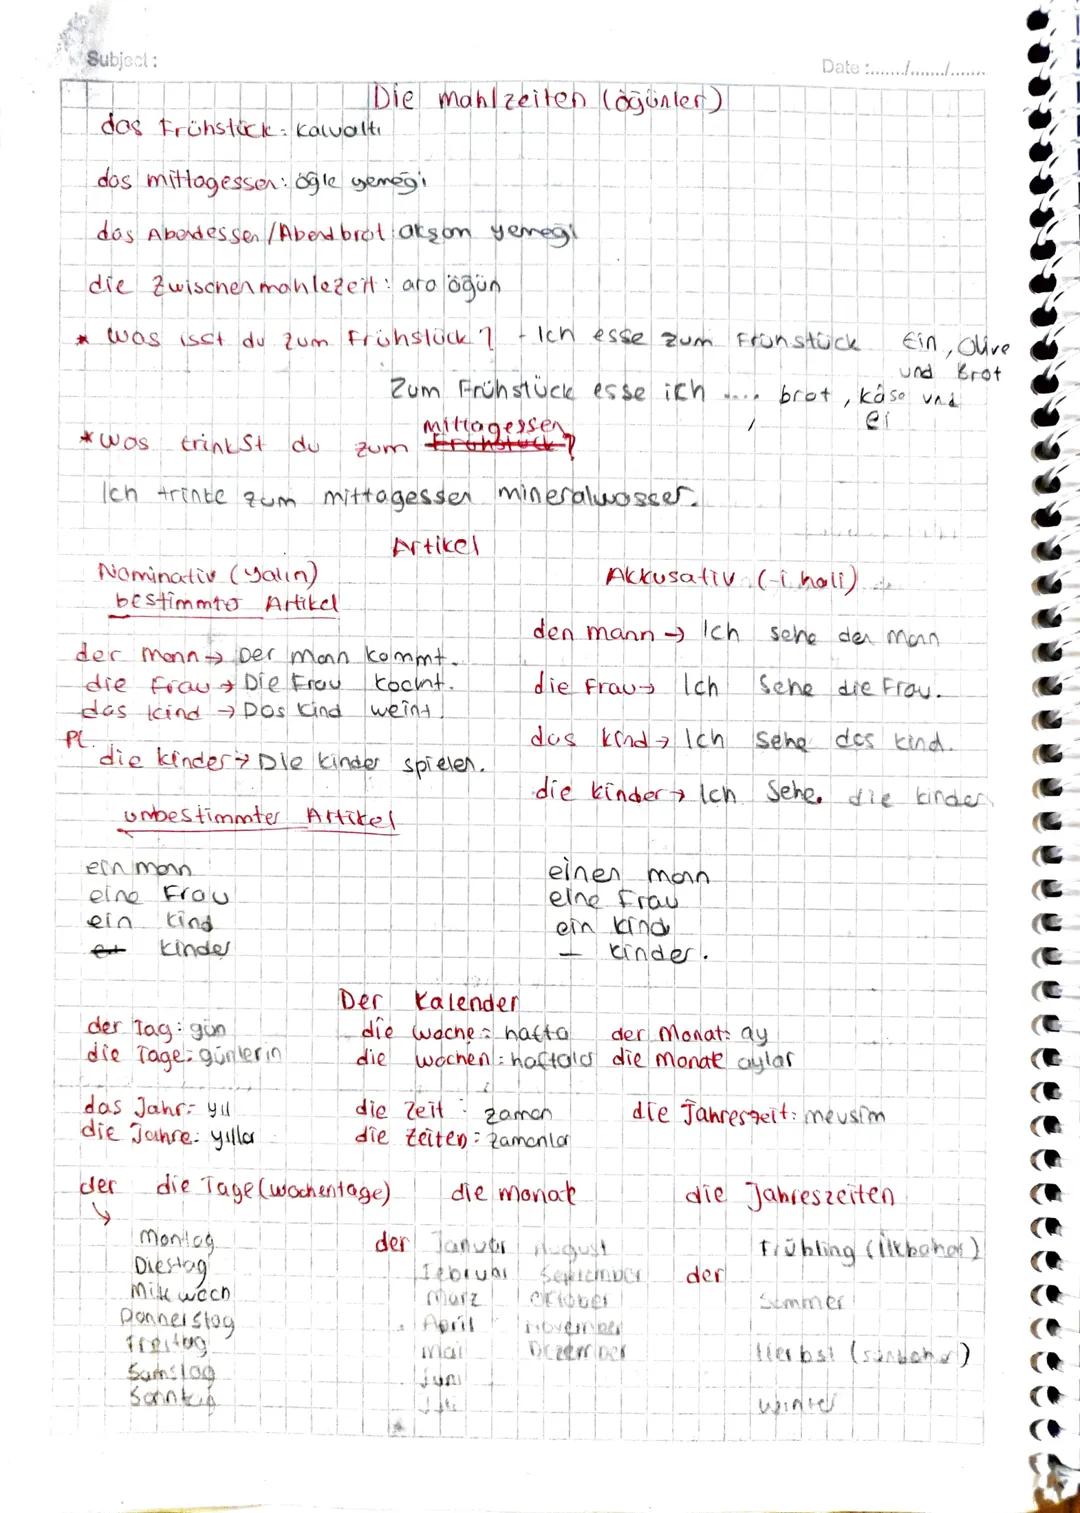 Subject :
Date :......./......./.......
Die mahlzeiten (öğünler)
das Frühstück : kahvaltı
das mittagessen : öğle yemeği
das Abendessen / Abendbrot : akşam yemeği
die Zwischenmahlezeit : ara öğün
* Was isst du zum Frühstück ? - Ich esse zum Frühstück Ein, Olive
und Brot
Zum Frühstück esse ich .... brot , käse und
ei
mittagessen
* was trinkst du zum Frühstück ?
Ich trinke zum mittagessen mineralwasser.
Artikel
Nominativ (yalın) Akkusativ (-i hali)
bestimmter Artikel
den mann → Ich sehe den mann
der mann → Der mann kommt.
die Frau → Die Frau kocht. die Frau → Ich sehe die Frau.
das kind → Das kind weint.
Pl. das kind → Ich sehe das kind.
die kinder → Die kinder spielen.
die kinder → Ich sehe die kinder
unbestimmter Artikel
ein mann einen mann
eine Frau eine Frau
ein kind ein kind
kinder — kinder.
Der Kalender
der Tag : gün die woche : hafta der Monat : ay
die Tage : günlerin die wochen : haftalar die Monate aylar
das Jahr : yıl die Zeit : zaman die Jahreszeit : mevsim
die Jahre : yıllar die Zeiten : zamanlar
der die Tage (wochentage) die monate die Jahreszeiten
Montag der Januar August Frühling (ilkbahar)
Diestag Februar September der
Mittwoch März Oktober Sommer
Donnerstag April November
Freitag Mai Dezember Herbst (sonbahar)
Samstag Juni
Sonntag Juli Winter